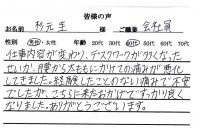 皆様の声
お名前 杉元圭 ご職業 会社員
性別 男性・女性 年齢 20代 30代 40代 50代 60代 70代
仕事内容が変わり、デスクワークが多くなった
せいか、腰から太ももにかけての痛みが悪化
してきました。経験したことのない痛みで不安
でしたが、こちらに来たおかげですっかり良く
なりました。ありがとうございます。